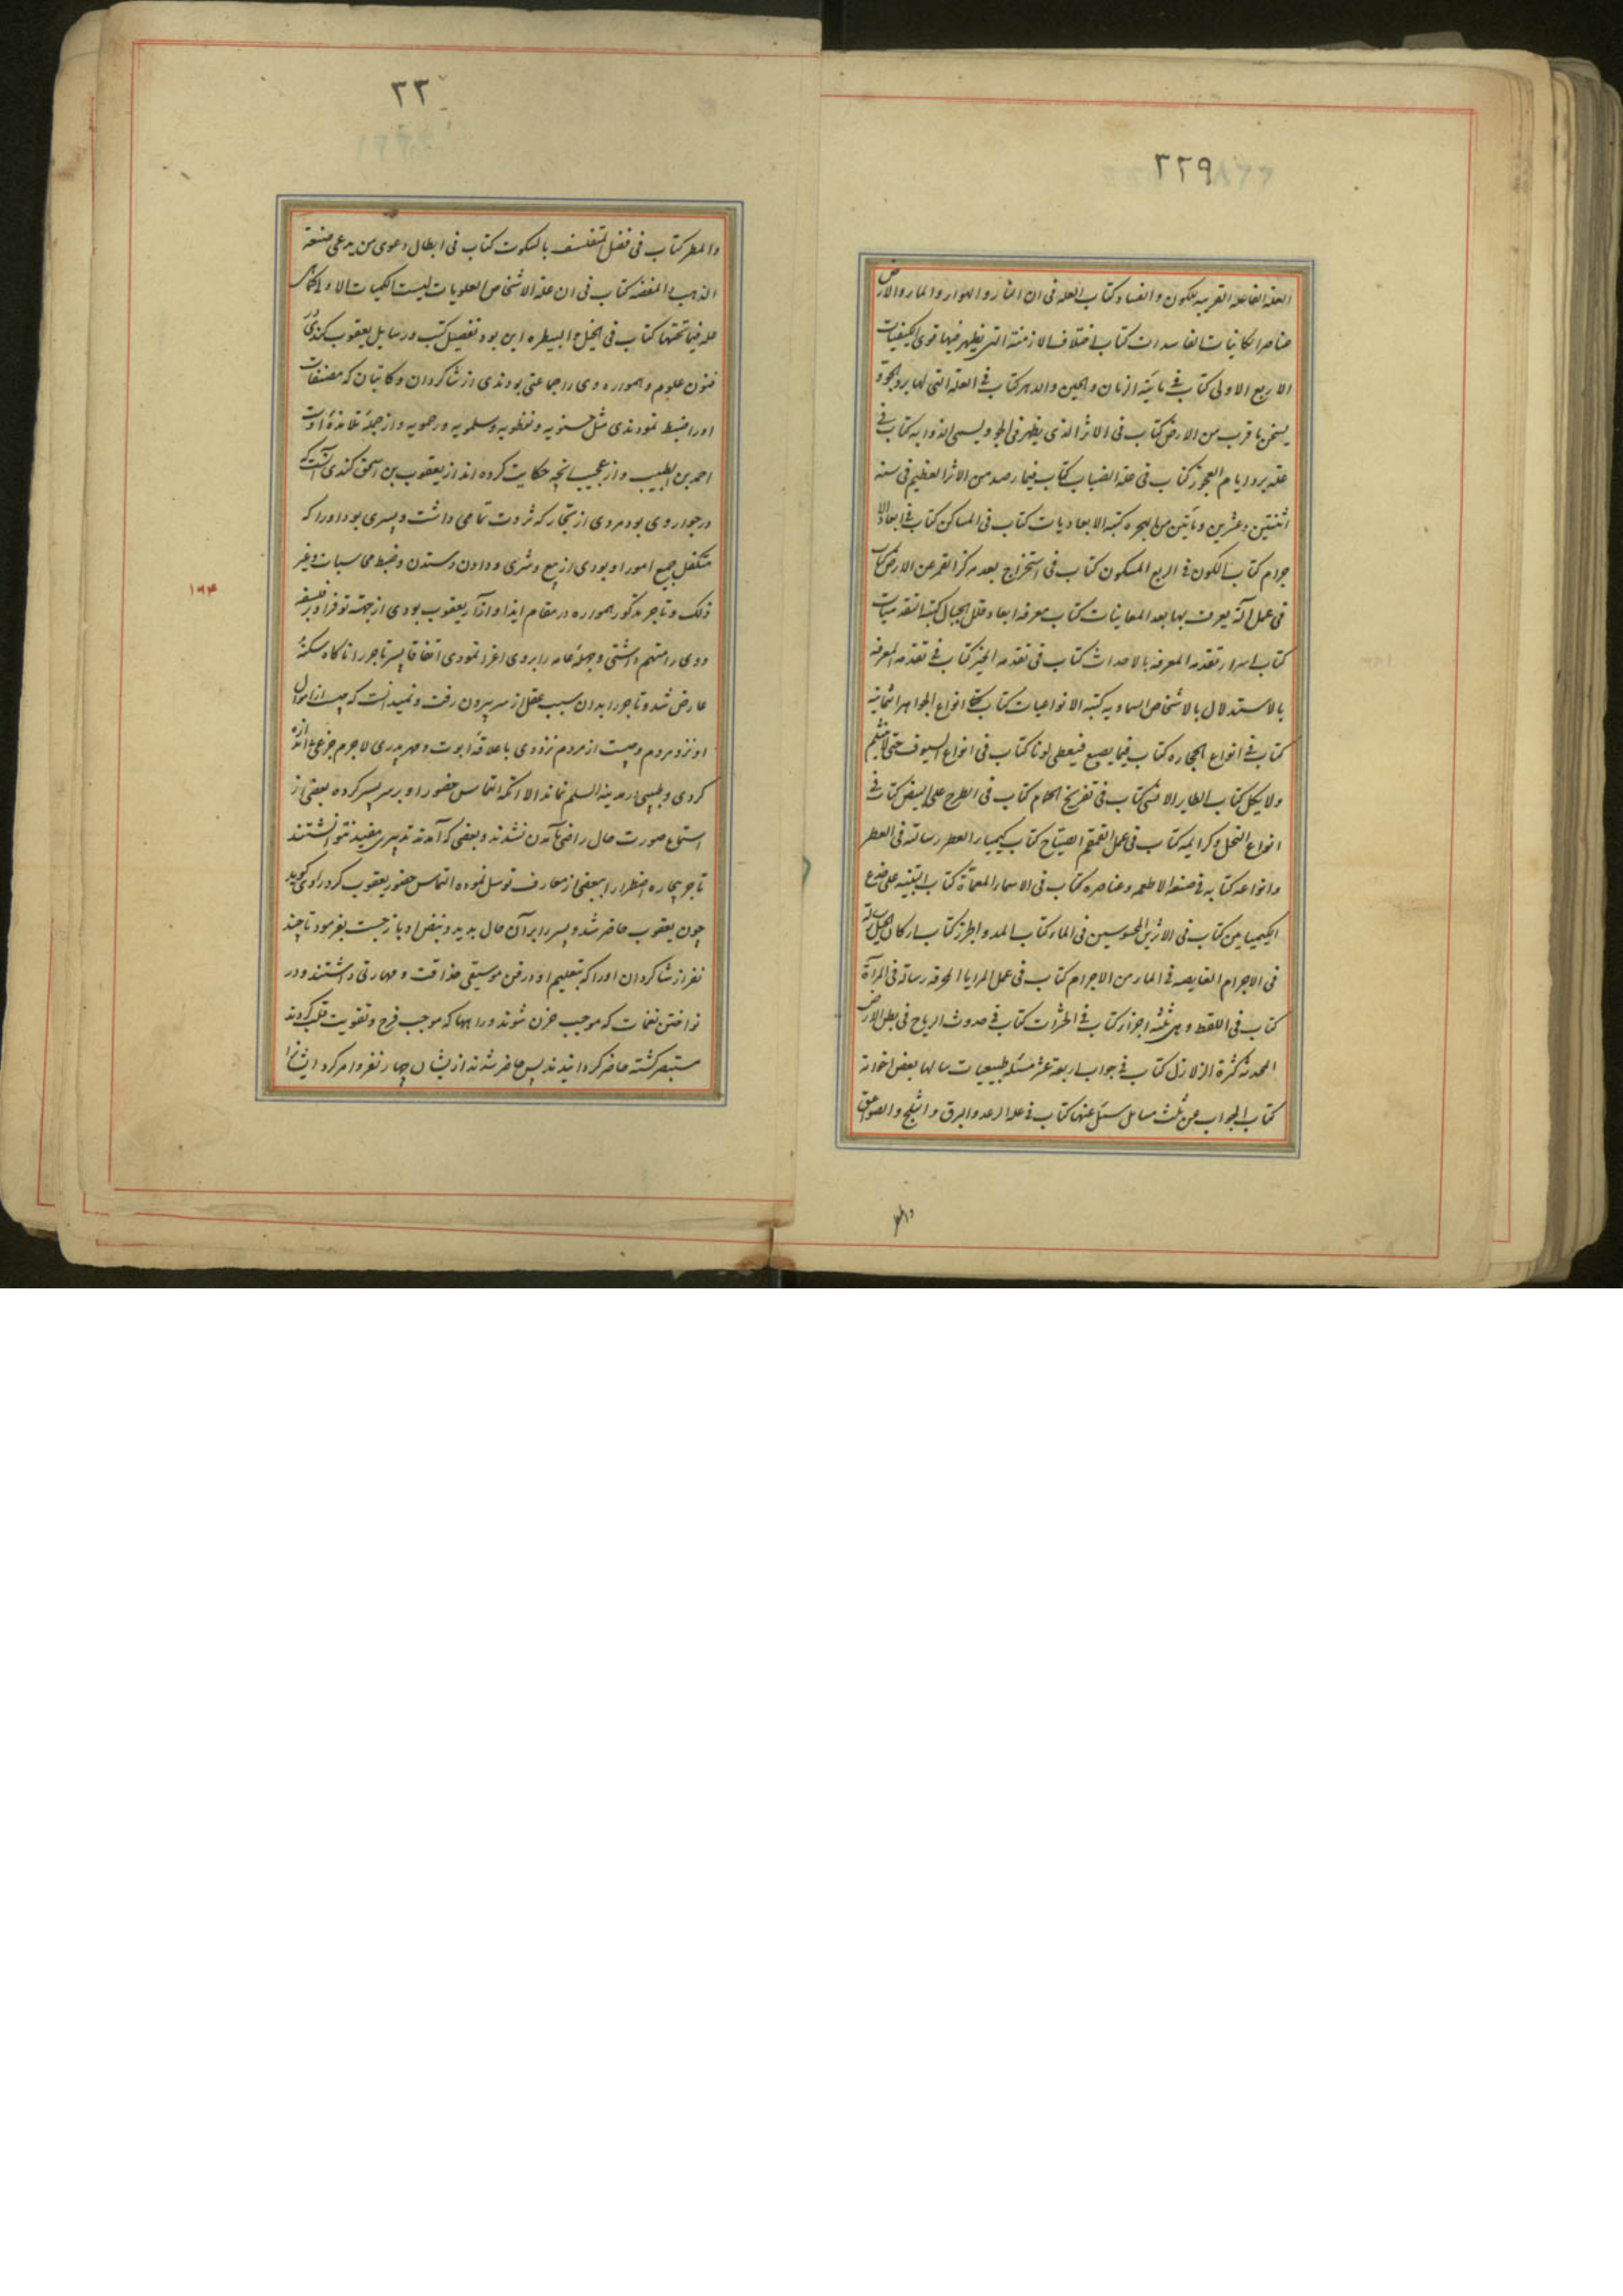 ٢٢٩
العله الفاعله القریبه للکون والفساد کتاب العله فی ان النار والهواء والماء والارض
عناصر الکاینات الفاسدات کتاب اختلاف الازمنة التی یظهر فیها قوی الکیفیات
الاربع الاولی کتاب فی مائیة الزمان والحین والدهر کتاب فی العلة التی لها یبرد الجو و
یسخن ما قرب من الارض کتاب فی الاثر الذی یظهر فی الجو ویسمی الذوابه کتاب فی
علة برد ایام العجوز کتاب فی علة الضباب کتاب فیما رصد من الاثر العظیم فی سنه
اثنتین وعشرین ومأتین من الهجره کتبه الابعادیات کتاب فی المساکن کتاب فی ابعاد الا
جرام کتاب الکون فی الربع المسکون کتاب فی استخراج بعد مرکز القمر عن الارض کتاب
فی عمل آلة یعرف بها بعد المعاینات کتاب معرفه ابعاد قلل الجبال کتبه التقدمیات
کتاب اسرار تقدمه المعرفه بالاحداث کتاب فی تقدمه الخبر کتاب فی تقدمه المعرفه
بالاستدلال بالاشخاص السماویه کتبه الانواعیات کتاب فی انواع الجواهر الثمانیه
کتاب فی انواع الحجاره کتاب فیما یصبغ فیعطی لونا کتاب فی انواع السیوف حتی لا ینثلم
ولا یکل کتاب الطایر الانسی کتاب فی تفریخ الحمام کتاب فی الطرح علی البیض کتاب فی
انواع النحل وکرایمه کتاب فی عمل القمقم الصیاح کتاب کیمیاء العطر رساله فی العطر
وانواعه کتابه فی صنعه الاطعمه وعناصره کتاب فی الاسماء المعماة کتاب التنبیه علی خدع
الکیمیایین کتاب فی الاثرین المحسوسین فی الماء کتاب المد والجزر کتاب ارکان الحیل رساله
فی الاجرام الغایصه فی الماء من الاجرام کتاب فی عمل المرایا المحرقه رساله فی المرآة
کتاب فی اللفظ وهی ثلثه اجزاء کتاب فی الحشرات کتاب فی حدوث الریاح فی بطن الارض
المحدثه کثرة الزلازل کتاب فی جواب اربعة عشر مسئله طبیعیات سالها بعض اخوانه
کتاب الجواب عن ثلث مسایل سئل عنها کتاب فی علة الرعد والبرق والثلج والصواعق
والمطر
٢٣٠
والمطر کتاب فی فضل المتفلسف بالسکوت کتاب فی ابطال دعوی من یدعی صنعة
الذهب والفضه کتاب فی ان علة الاشخاص العلویات لیست الکیفیات الاولی کما هی
علة فیما تحتها کتاب فی الخیل والبیطره این بود تفصیل کتب ورسایل یعقوب کندی در
فنون علوم و همواره وی را جماعتی بودندی از شاکردان و کاتبان که مصنفات
او را ضبط نمودندی مثل حسنویه ونفطویه وسلمویه ورحمویه واز جمله تلامذه اوست
احمد بن الطیب واز عجیب آنچه حکایت کرده اند از یعقوب بن اسحق کندی آنست که
در جوار وی بود مردی از تجار که ثروت تمامی داشت وپسری بود او را که
متکفل جمیع امور او بودی از بیع وشری ودادن وستدن وضبط محاسبات وغیر
ذلک وتاجر مذکور همواره در مقام ایذا وآزار یعقوب بودی از جهت توفر او بر فلسفه
ووی را متهم داشتی وجهله عامه را بر وی اغرا نمودی اتفاقا پسر تاجر را ناکاه سکتهٔ
عارض شد وتاجر را بدان سبب عقل از سر بیرون رفت ونمیدانست که چیست از اموال
او نزد مردم وچیست از مردم نزد وی با علاقهٔ ابوت ومهر پدری لاجرم جزعی بی اندازه
کردی وطبیبی در مدینة السلم نماند الا آنکه التماس حضور او بر سر پسر کرده بعضی از
استماع صورت حال راضی بآمدن نشدند وبعضی که آمدند تدبیری مفید نتوانستند
تاجر بیچاره اضطرارا ببعضی از معارف توسل نموده التماس حضور یعقوب کرد راوی کوید
چون یعقوب حاضر شد وپسر را بر آن حال بدید ونبض او باز جست بفرمود تا چند
نفر از شاکردان او را که بتعلیم او در فن موسیقی حذاقت ومهارتی داشتند ودر
نواختن نغمات که موجب حزن شوند ورا هها که موجب فرح وتقویت قلب کردند
مستبصر کشته حاضر کردانیدند پس حاضر شدند از ایشان چهار نفر وامر کرد ایشانرا
١٢۴